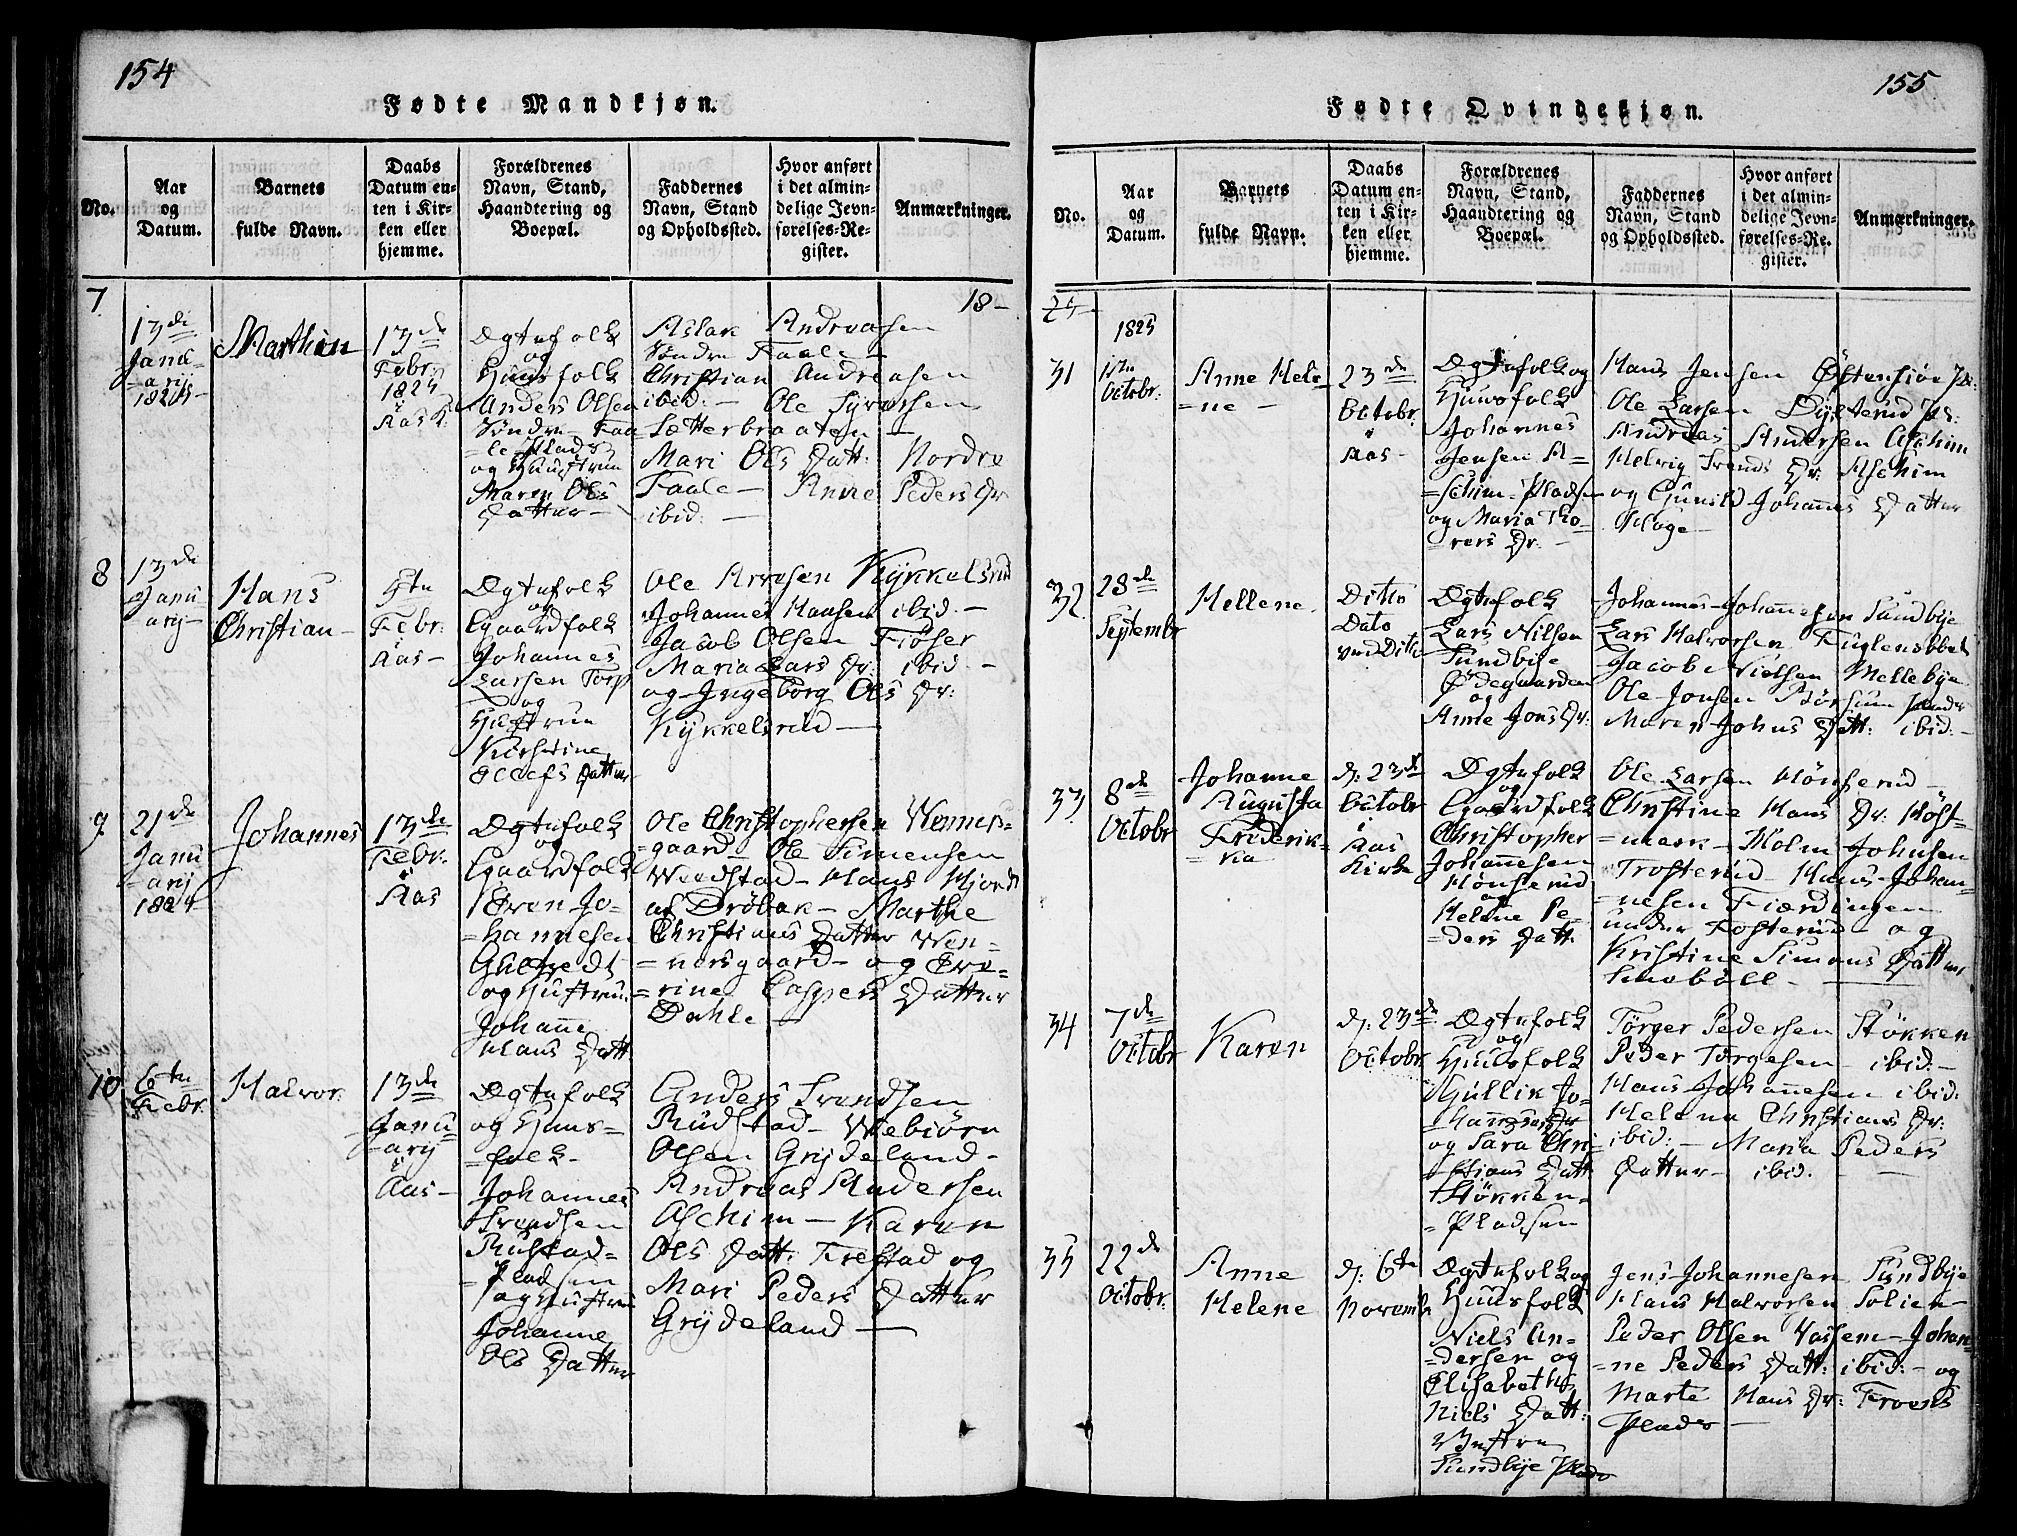 154
Fødte Mandkjøn.
No.
Aar
og
Datum.
Barnets
fulde Navn.
Daabs
Datum en-
ten i Kir-
ken eller
hjemme.
Forældrenes
Navn, Stand,
Haandtering og
Boepæl.
Faddernes
Navn, Stand
og Opholdssted.
Hvor anført
i det almin-
delige Jevn-
førelses-Re-
gister.
Anmærkninger.
18-
7
13de
Janu-
-arij
Marthin
13de
Febr:
1825
i
Aas K:
Ægtefolk
og
Huusfolk
Anders Olsen
Søndre Faa-
-le Plads
og Hustrue
Maren Ols
Datter-
Aslak Andreasen
Søndre Faale-
Christian Andreasen
ibid:- Ole Syversen
Sætterbraaten-
Mari Ols Datt: Nordre
Faale- Anne Peders Dr
ibid:-
8
13de
Janu-
arij-
Hans
Christian-
Febr:
Aas-
Ægtefolk
og
Gaardfolk
Johannes
Larsen Torp
og
Hustrue
Kirstine
Olefs Datter
Ole Arvesen Kykkelsrud
Johannes Hansen ibid-
Jacob Olsen Fioser
Maria Lars Dr: ibid-
og Ingeborg Ols Dr:
Kykkelsrud-
9
21de
Janu
-arij
Johannes
13de
Febr:
i
Aas
Ægtefolk
og
Gaardfolk
Even Jo-
-hannesen
og Hustrue
Johanne
Hans Datt
Ole Christophersen Wennes-
gaard- Ole Simensen
Weedstad- Hans Hjord
af Drøbak- Marthe
Christians Datter Wen-
-nersgaard- og Eve-
-rine Caspers Datter
Dahle-
10
6te
Febr.
Halvor.
13de
Janu-
-arij
i
Aas-
Ægtefolk
og Huus-
-folk-
Johannes
Svendsen
Rustad-
-Pladsen
og Hustrue
Johanne
Ols Datter
Anders Svendsen
Rudstad- Webiørn
Olsen Grydeland-
Andreas Andersen
Aschim- Karen
Ols Datt: Frestad og
Mari Peders Datter
Grydeland-
155
Fødte Qvindekjøn.
No.
Aar
og
Datum.
Barnets
fulde Navn.
Daabs
Datum en-
ten i Kir-
ken eller
hjemme.
Forældrenes
Navn, Stand,
Haandtering og
Boepæl.
Faddernes
Navn, Stand
og Opholdssted.
Hvor anført
i det almin-
delige Jevn-
førelses-Re-
gister.
Anmærkninger.
1825
31
Octobr:
Anne Hele-
-ne-
23de
Octobr
i
Aas-
Ægtefolk og
Huusfolk
Johannes
Jensen A-
-schim-Pladsen
og Maria Tho-
-rers Dr:-
Hans Jensen Østensiøe
Ole Larsen
Andreas Andersen Aschim
Helvig Svends Dr: Aschim
og Gunild Johannes Datter
32
28de
Septembr
Hellene
Ditto
Dato
Ægtefolk
Lars Nilsen
Sundbije
Ødegaarden
og
Anne Jons Dr:
Johannes Johannesen Sundbye
Lars Halvorsen
Jacob Nielsen Mellebye
Ole Jonsen
Maren Johns Datt: ibid:-
33
8de
Octobr
Johanne
Augusta
Friderik-
-kia
d: 23de
Octobr
i
Aas
Kirke
Ægtefolk
og
Gaardfolk
Christopher
Johannesen
Hønserud
og
Helene Pe-
-ders Datt.
Ole Larsen Hønserud-
Christine Hans Dr: Høst-
-mark- Holm Johnsen
Trosterud- Hans Johan-
-nesen Fiærdingen
under Tosterud- og
Kristine Simons Datter
34
7de
Octobr
Karen
d: 23de
Octobr
Ægtefolk
og
Huusfolk
Gullik Jo-
og Sara Chri-
-stians Datt
Støkken-
-Pladsen
Torger Pedersen Støkken
Peder Torgesen ibid:-
Hans Johannesen ibid:
Helena Christians Dr:
ibid:- Maria Peders
Datter- ibid.-
35
22de
Octobr.
Anne
Helene
d: 6te
Novembr
Ægtefolk og
Huusfolk
Niels An-
-dersen og
Elisabeth
Niels Datt:
Vestre
Sundbije Plads
Jens Johannesen Sundbye
Hans Halvorsen Solien-
Peder Olsen Hassem- Johan-
-ne Peders Datt: ibid:- og
Marte Hans Dr: Froens
Plads-